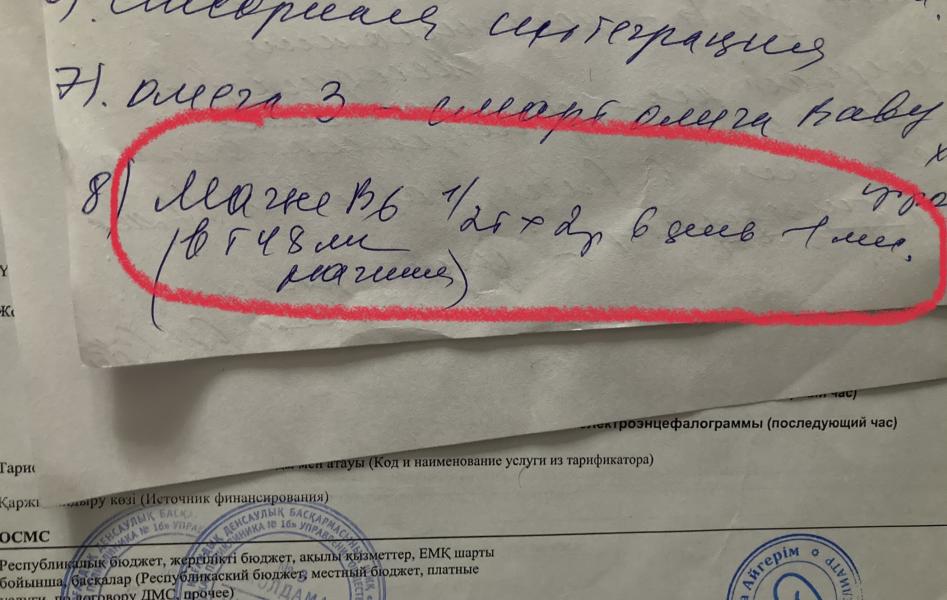 6). сенсорная интеграция
7). омега 3 - смарт омега Baby
8) Магне B6 1/2т х 2р в день - 1 мес.
(в т 48 мг
магния)
час)
электроэнцефалограммы (последующий час)
мен атауы (Код и наименование услуги из тарификатора)
көзі (Источник финансирования)
ОСМС
Республикалық бюджет, жергілікті бюджет, ақылы қызметтер, ЕМҚ шарты
бойынша, басқалар (Республиканский бюджет, местный бюджет, платные
по договору ДМС, прочее)
ДЕНСАУЛЫҚ БАСҚАРМАСЫНЫҢ
№ 16» УПРАВ
Айгерім